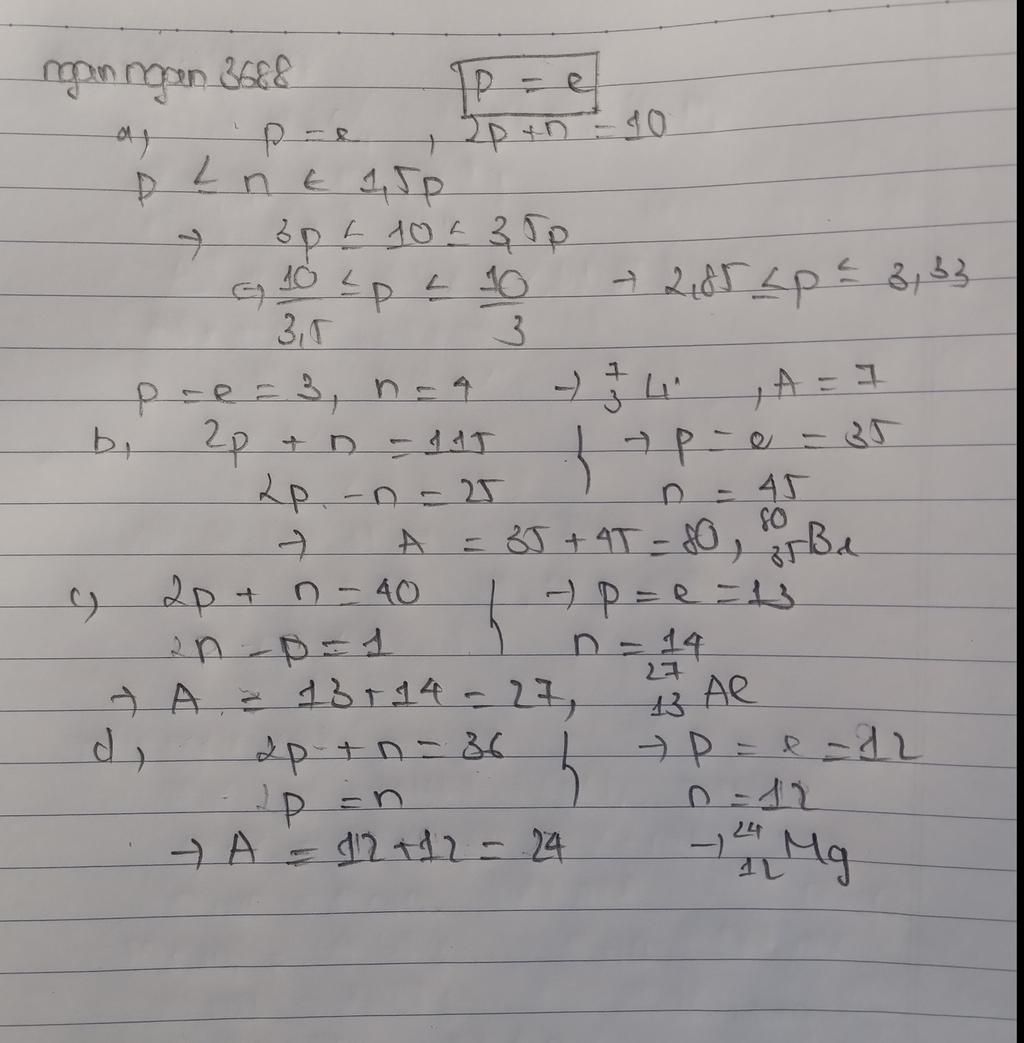 ngan ngan 3688 p = e
a, p = e , 2p + n = 10
p ≤ n ≤ 1,5p
→ 3p ≤ 10 ≤ 3,5p
⇔ 10/3,5 ≤ p ≤ 10/3 → 2,85 ≤ p ≤ 3,33
p = e = 3, n = 4 → ⁷₃Li , A = 7
b, 2p + n = 115 } → p = e = 35
2p - n = 25 n = 45
→ A = 35 + 45 = 80, ⁸⁰₃₅Br
c, 2p + n = 40 } → p = e = 13
n - p = 1 n = 14
→ A = 13 + 14 = 27, ²⁷₁₃Al
d, 2p + n = 36 } → p = e = 12
p = n n = 12
→ A = 12 + 12 = 24 → ²⁴₁₂Mg